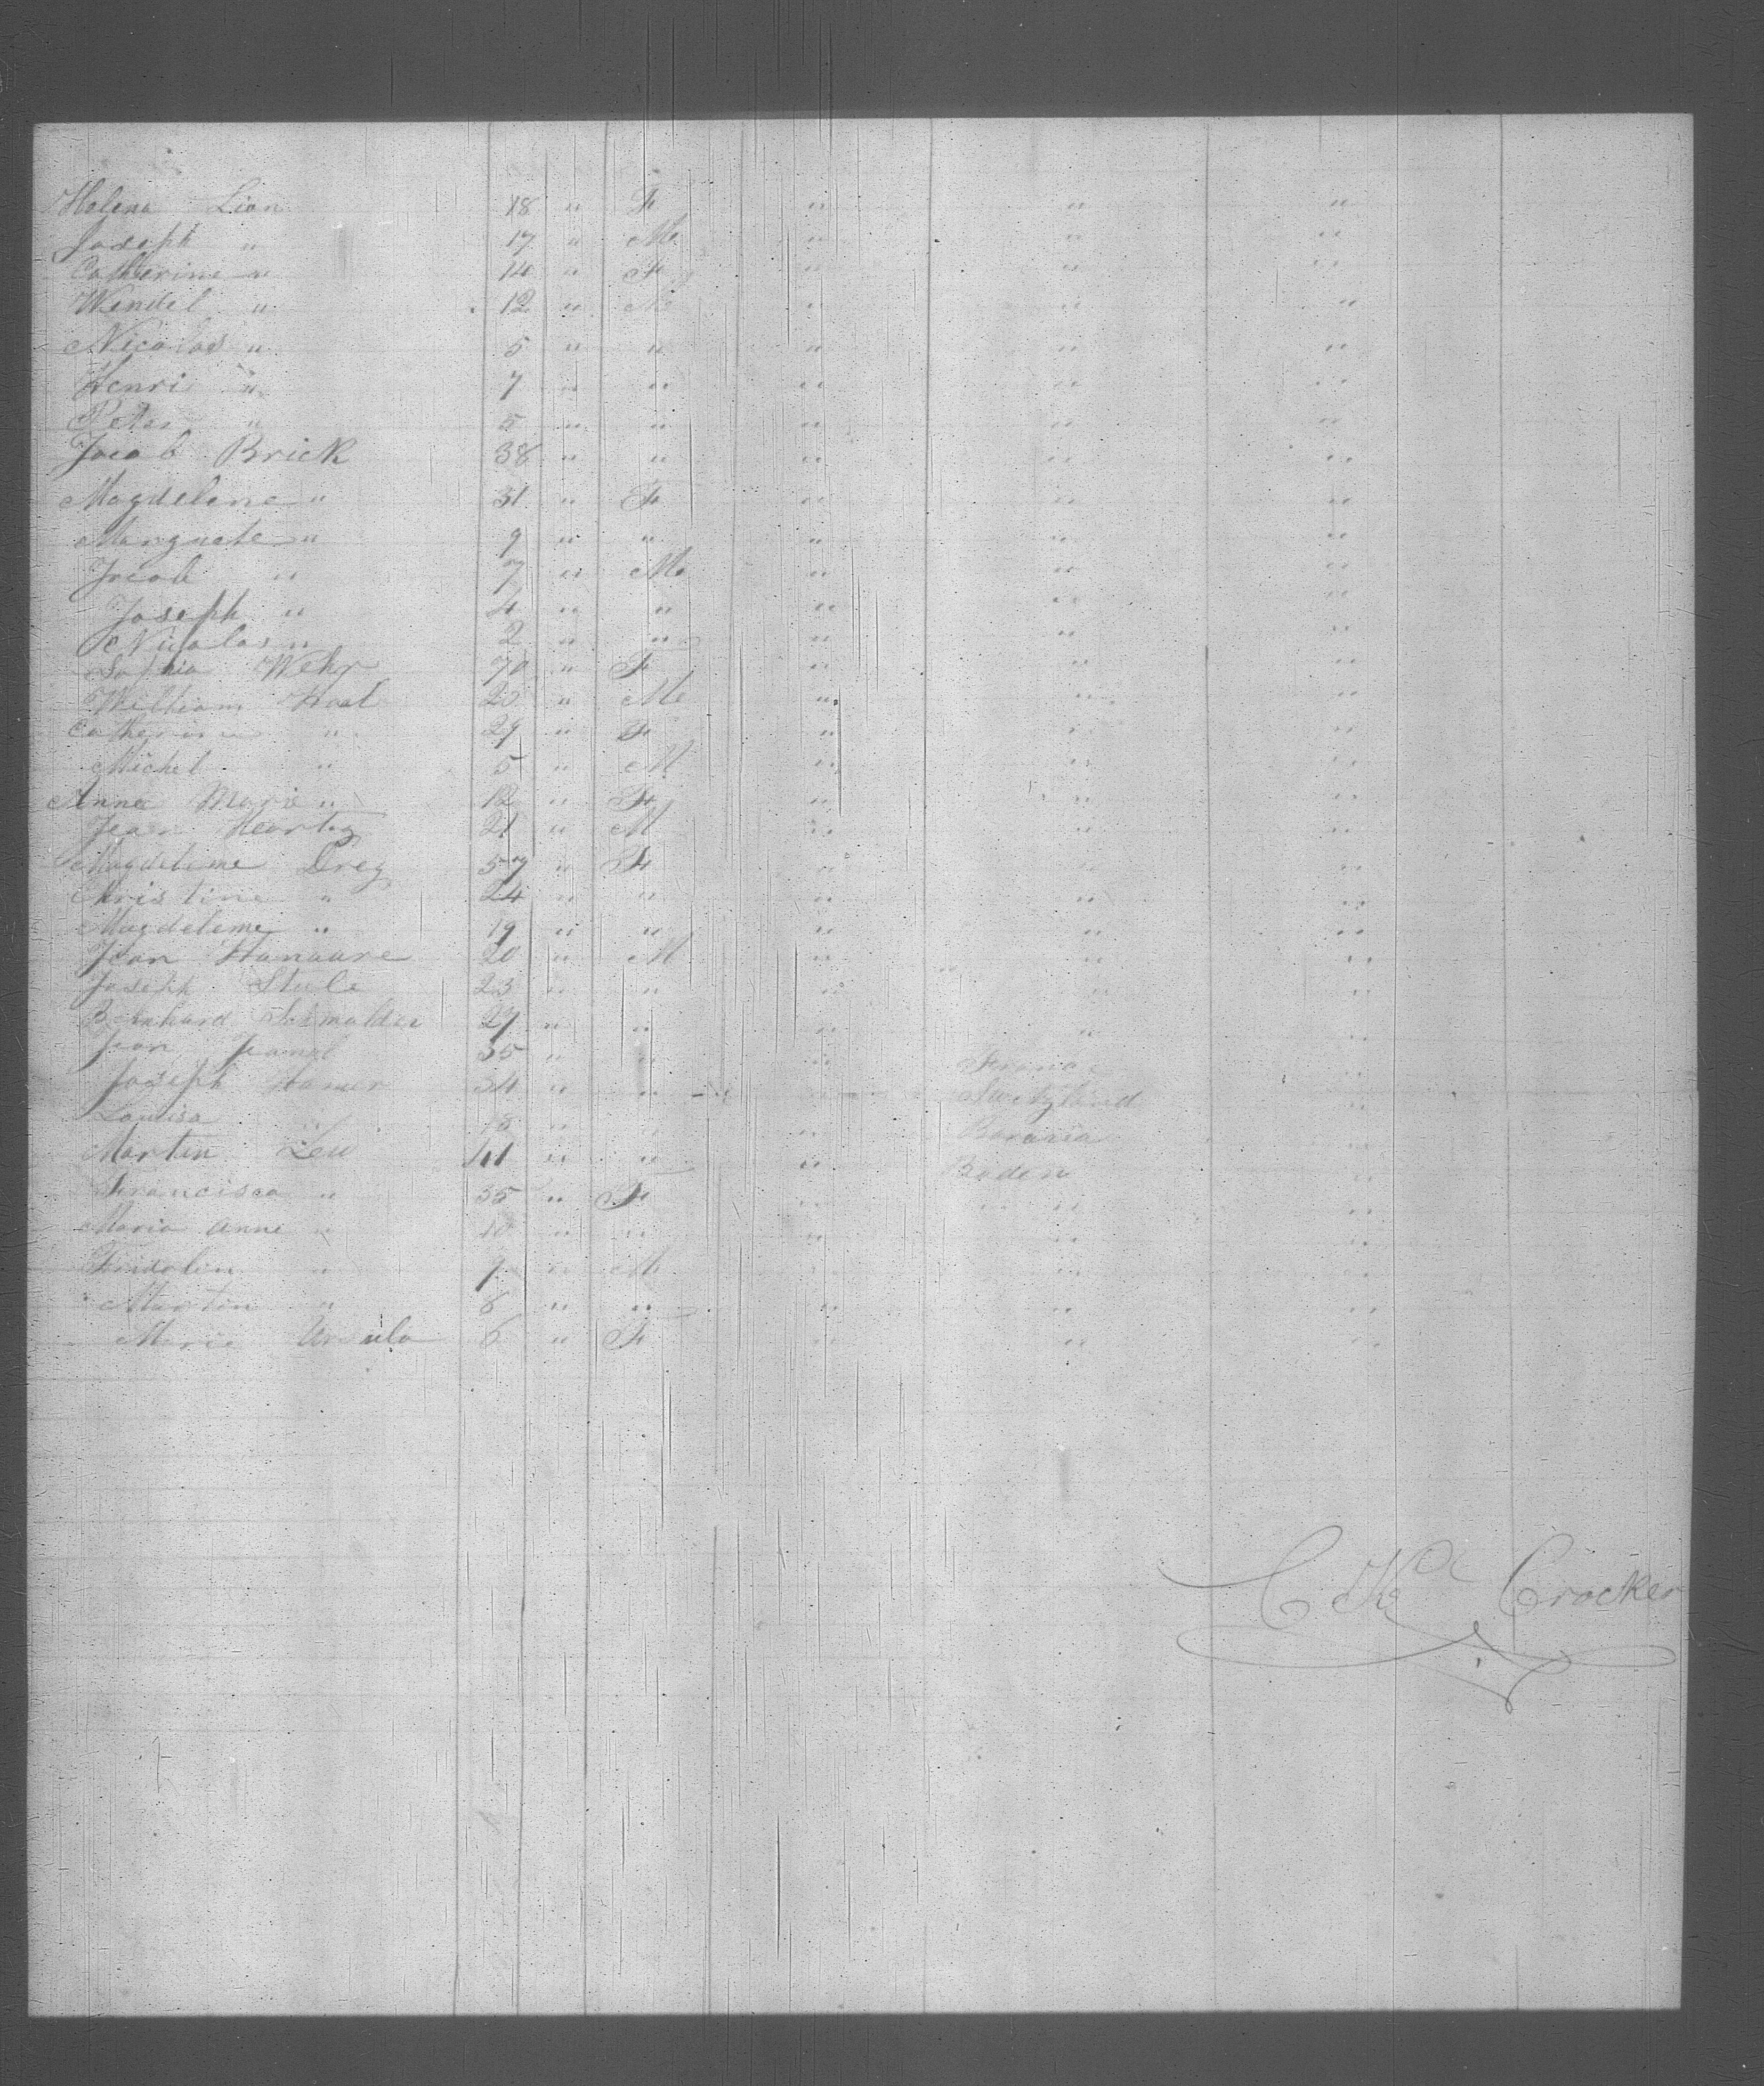 Helena Lion 18 " F " " "
Joseph " 17 " Me " " "
Catherine " 14 " F " " "
Wendel " 12 " Me " " "
Nicolas " 5 " " " " "
Henri " 7 " " " " "
Peter " 5 " " " " "
Jacob Brick 38 " " " " "
Magdelene " 31 " F " " "
Marguete " 9 " " " " "
Jacob " 7 " Me " " "
Joseph " 4 " " " " "
Nicolas " 2 " " " " "
Sophia Wehr 70 " F " " "
William 20 " Me " " "
Catherine " 29 " F " " "
Michel " 5 " M " " "
Anna Marie " 12 " F " " "
Jean Heartz 21 " M " " "
Magdeleme Dreg 57 " F " " "
Christine " 24 " " " " "
Magdeleme " 19 " " " " "
Jean 20 " M " " "
Joseph Stule 23 " " " " "
Bernhard 27 " " " " "
Jean 35 " " " France "
Joseph 34 " " " Switzland "
Louisa " 18 " " " Bavaria "
Martin Leu 41 " " " Baden "
Francisca " 35 " F " " "
Maria Anne " 10 " " " " "
Fridolin " 9 " M " " "
Martin " 8 " " " " "
Marie Ursula 6 " F " " "
Crocker